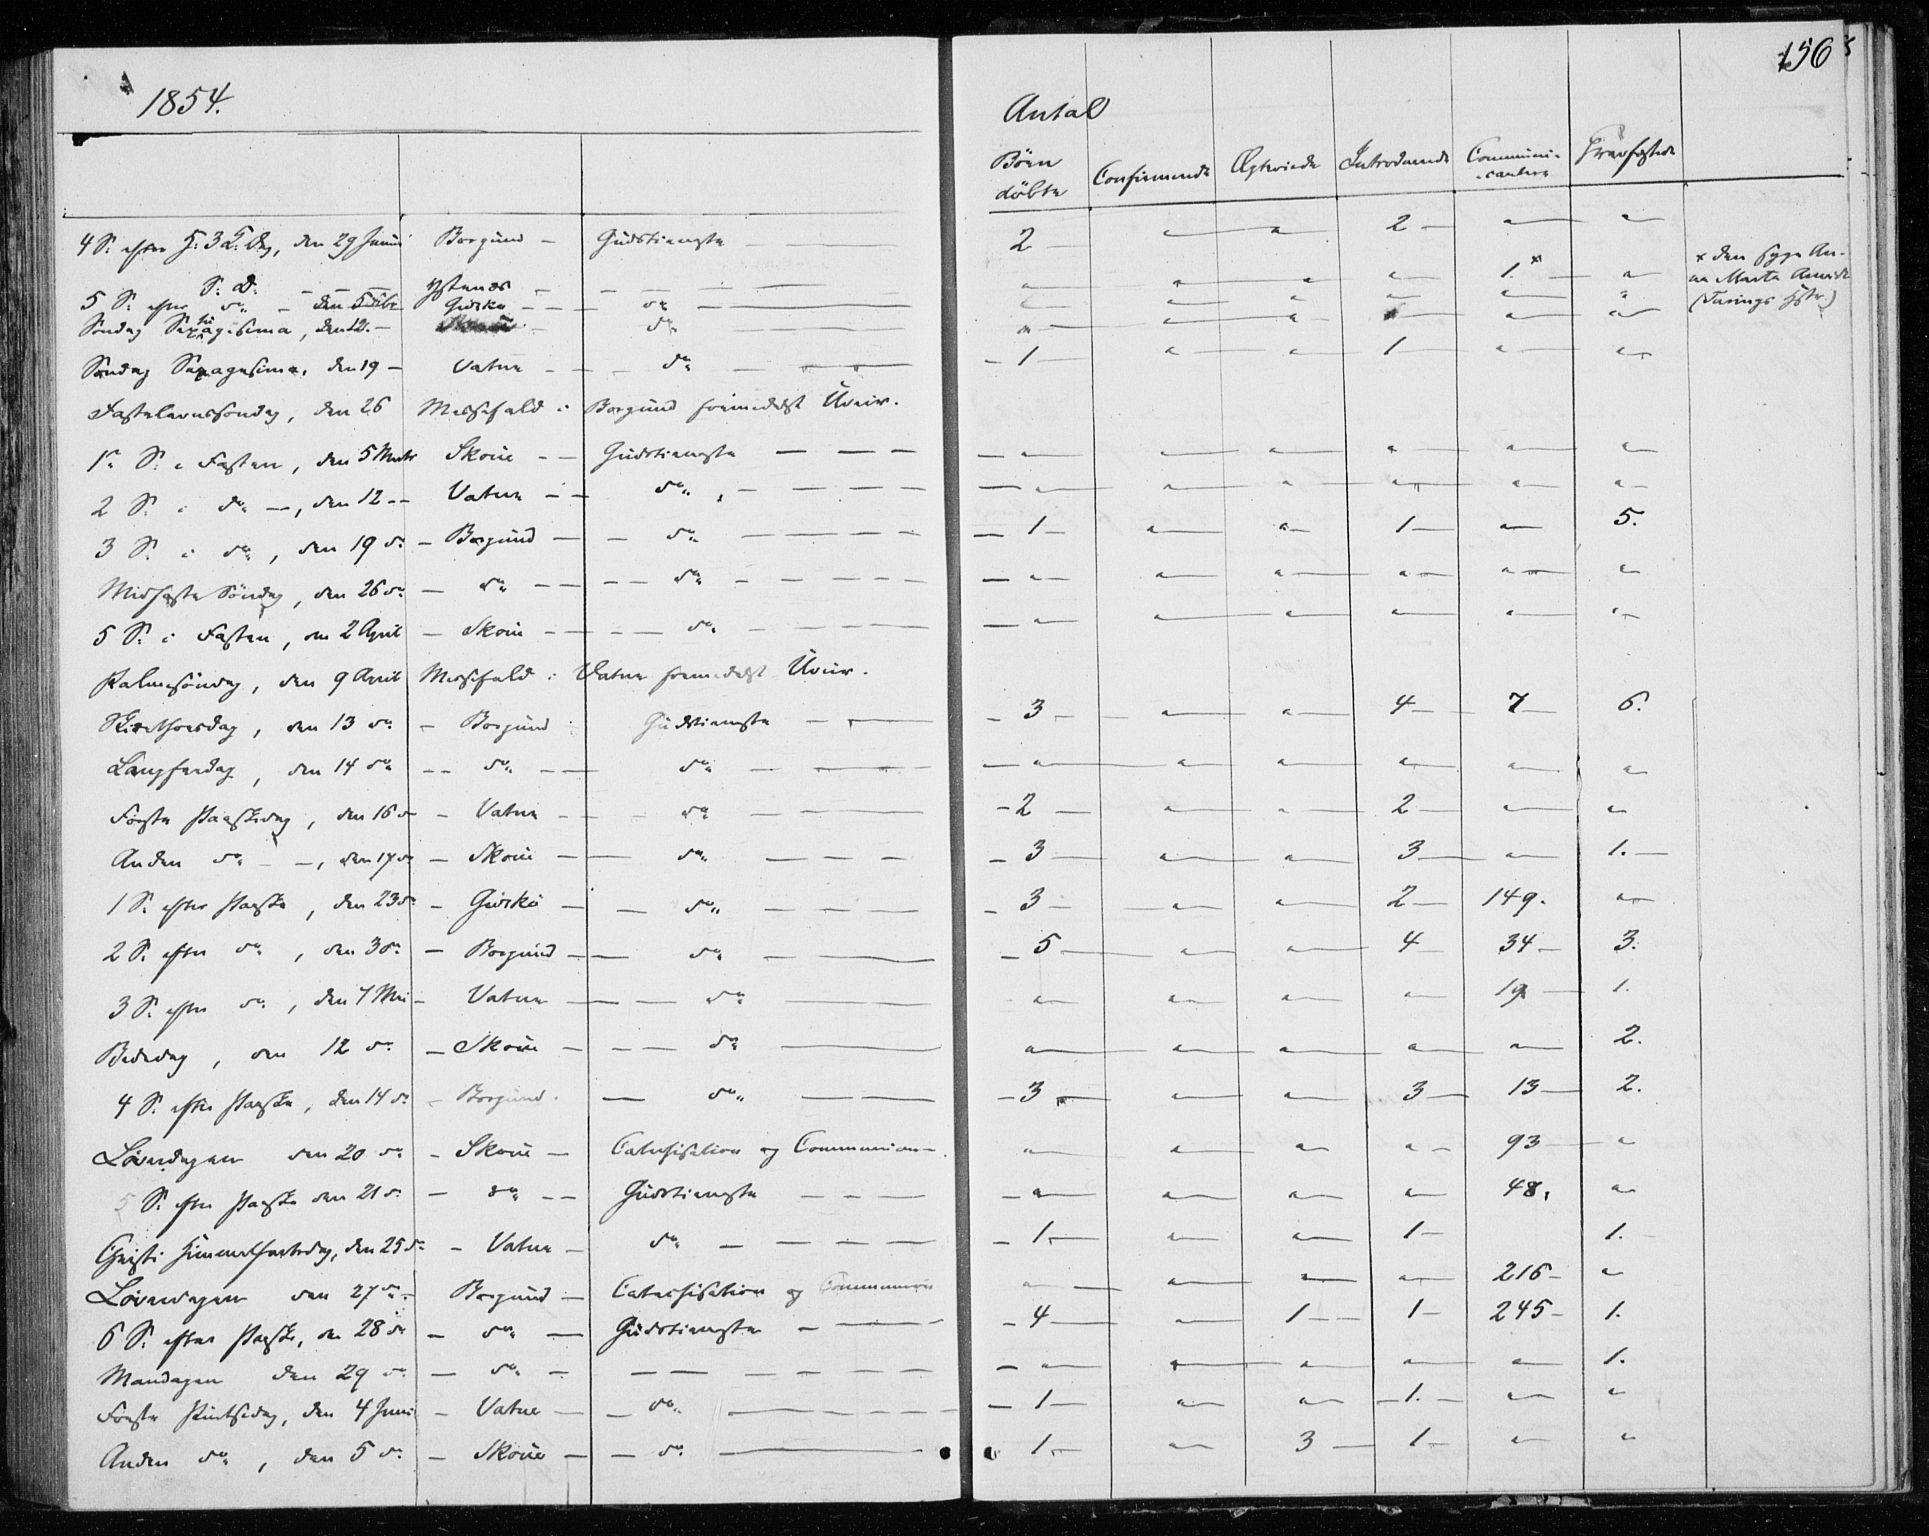 1854.
156
Antal
Börn döbte | Confirmerede | Ægteviede | Introducerede | Communicantere | Gravfæstede
4 S. efter H. 3 K. Dag, den 29 Januar | Borgund — | Gudstieneste | 2 | " | " | 2 | " | "
S. D. — | " | " | " | 1.× | " | × den syge Anna Marta
5 S. efter do — den 5 Febr | Giskö — | do | " | " | " | " | " | "
Söndag Septuagesima, den 12. — | do | " | " | " | " | "
Söndag Sexagesima, den 19 — | Vatne — | do | 1 | " | " | 1 | " | "
Fastelavnssöndag, den 26 | Messefald i Borgund formedelst Uveir.
1e S. i Fasten, den 5 Marts | Skoue — | Gudstieneste | " | " | " | " | " | "
2 S. i do —, den 12 — | Vatne — | do | " | " | " | " | " | "
3 S. i do, den 19 do | Borgund — | do | 1 | " | " | 1 | " | 5.
Midfaste Söndag, den 26 do | do — | do | " | " | " | " | " | "
5 S. i Fasten, den 2 April | Skoue — | do | " | " | " | " | " | "
Palmesöndag, den 9 April | Messefald i Vatne formedelst Uveir.
Skierthorsdag, den 13 do | Borgund | Gudstieneste | 3 | " | " | 4 | 7 | 6.
Langfredag, den 14 do | do — | do | " | " | " | " | " | "
Förste Paaskedag, den 16 do | Vatne — | do | 2 | " | " | 2 | " | "
Anden do —, den 17 do | Skoue — | do | 3 | " | " | 3 | " | 1.
1 S. efter Paaske, den 23 do | Giskö — | do | 3 | " | " | 2 | 149. | "
2 S. efter do, den 30 do | Borgund — | do | 5 | " | " | 4 | 34 | 3.
3 S. efter do, den 7 Mai | Vatne — | do | " | " | " | " | 19 | 1.
Bededag, den 12 do | Skoue — | do | " | " | " | " | " | 2.
4 S. efter Paaske, den 14 do | Borgund. | do | 3 | " | " | 3 | 13 | 2.
Löverdagen den 20 do | Skoue — | Catechisation og Communion — | " | " | " | " | 93 | "
5 S. efter Paaske den 21 do | do — | Gudstieneste | " | " | " | " | 48. | "
Christi Himmelfartsdag, den 25 do | Vatne — | do | 1 | " | " | 1 | | 1.
Löverdagen den 27 do | Borgund — | Catechisation og Communion | " | " | " | " | 216 | "
6 S. efter Paaske, den 28 do | do — | Gudstieneste | 4 | " | 1 | 1 | 245 | 1.
Mandagen den 29 do | do — | " | " | " | " | " | 1.
Förste Pintsedag, den 4 Juni | Vatne — | do | 1 | " | " | 1. | " | "
Anden do, den 5 do | Skoue — | do | 1 | " | 3 | 1 | " | "